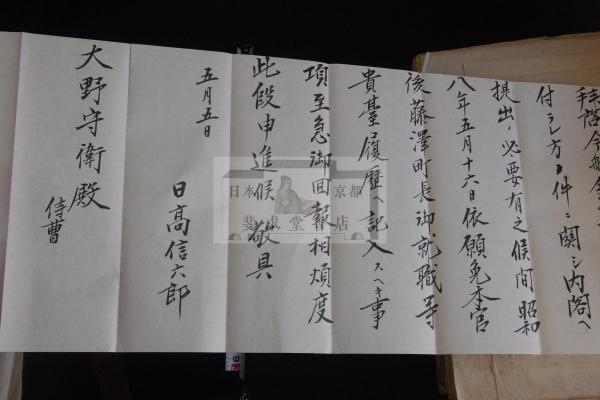 拝啓今般
付ラレ方ノ件ニ関シ内閣ヘ
提出ノ必要有之候間昭和
八年五月十六日依願免本官
後藤澤町長御就職等
貴臺履歴ヘ記入スヘキ事
項至急御回報相煩度
此段申進候 敬具
五月五日
日高信六郎
大野守衛殿
侍曹
日本 京都
斐求堂書店